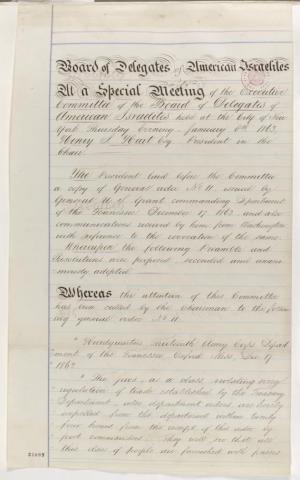 Board of Delegates of American Israelites
At a Special Meeting of the Executive
Committee of the Board of Delegates of
American Israelites held at the City of New
York Thursday Evening January 8th 1863.
Henry I. Hart Esq. President in the
Chair
The President laid before the Committee
a copy of General order No 11 issued by
General U. S. Grant commanding Department
of the Tennessee December 17 1862 and also
communications received by him from Washington
with reference to the revocation of the same.
Whereupon the following Preamble and
Resolutions were proposed seconded and unani
mously adopted.
Whereas the attention of this Committee
has been called by the chairman to the follow
ing general order No 11.
"Headquarters thirteenth Army Corps Depart
ment of the Tennessee Oxford Miss. Dec 17
1862
"The Jews, as a class, violating every
regulation of trade established by the Treasury
Department, also department orders, are hereby
expelled from the department within twenty
four hours from the receipt of this order by
post commanders. They will see that all
this class of people are furnished with passes